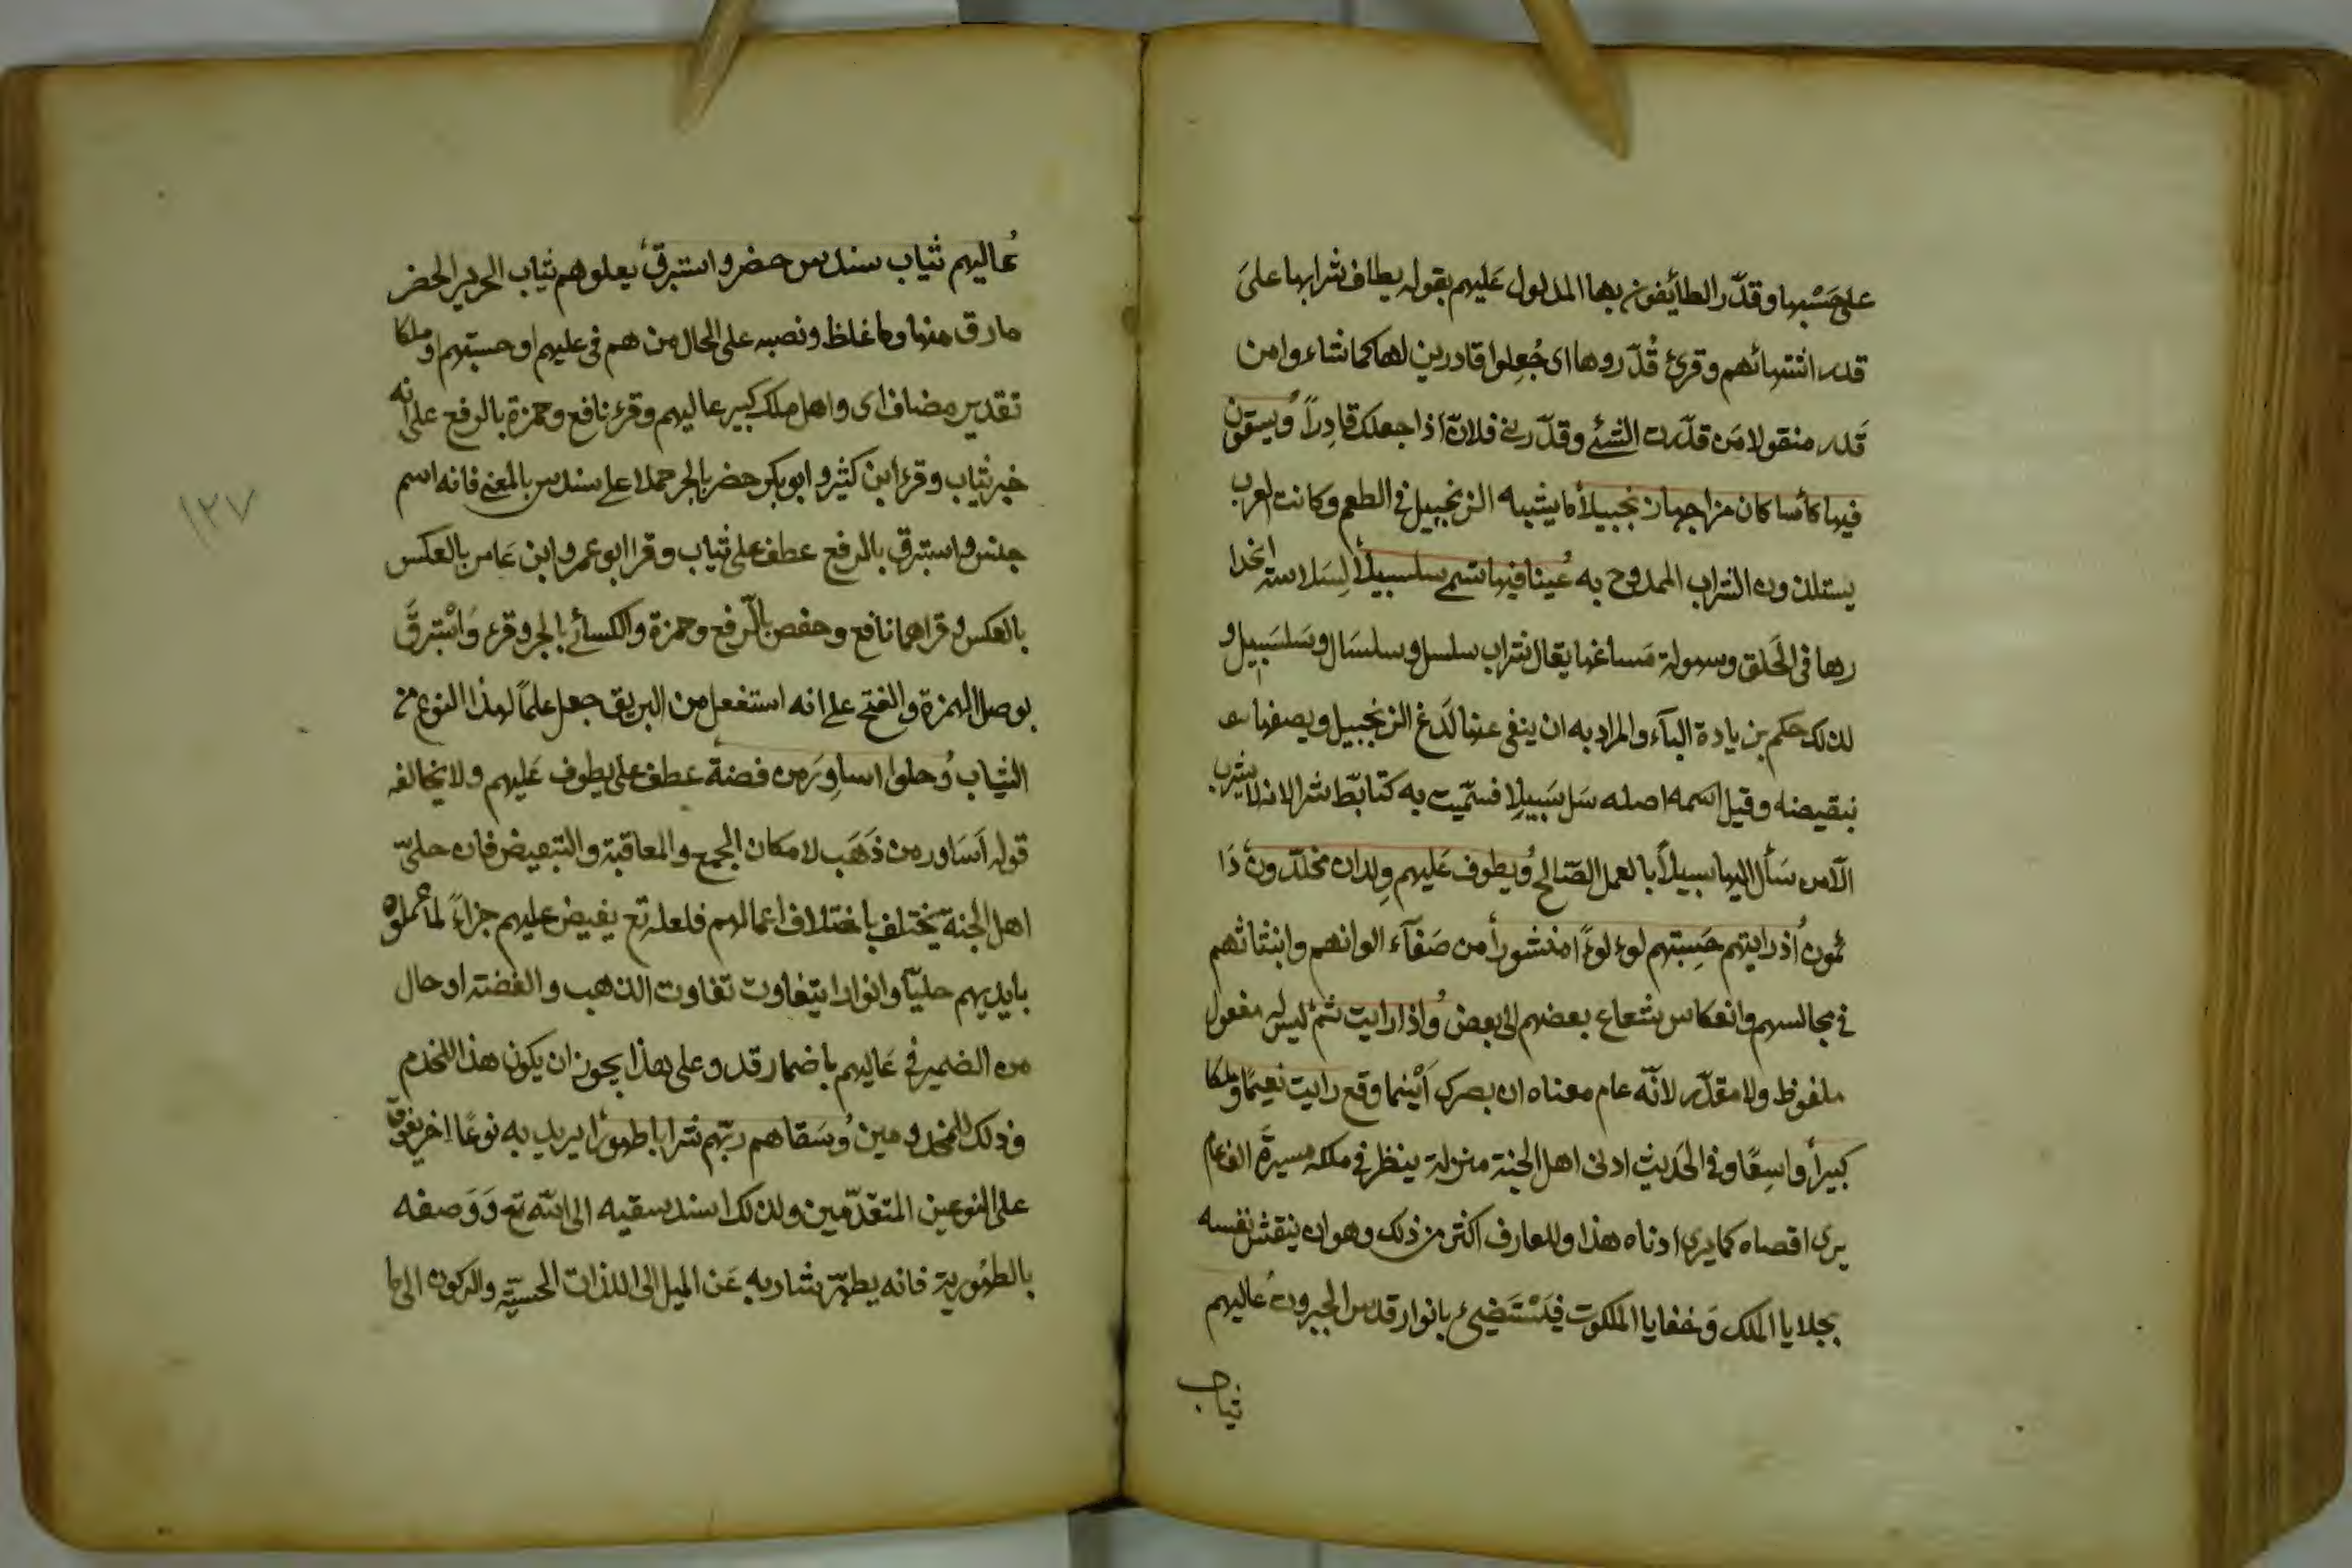 على حَسْبها وقدّر الطائفون بها المدلول عَليهم بقوله يطاف شرابها علىَ
قدر اشتهائهم وقرئ قُدّروها اى جُعِلوا قادرين لها كما شاءوا من
قَدر منقولا مَن قدّرت الشئ وقدّرنى فلانٌ اذا جعلك قادِراً ويسقون
فيها كأسا كان مزاجها زنجبيلاً ما يشبه الزنجبيل فى الطعم وكانت العرب
يستلذون الشراب الممدوح به عينا فيها تسمى سلسبيلاً لِسَلاسة انحدا
رها فى الحَلق وسهولة مَساغها يقال شراب سلسل وسلسَال وسَلسَبيل و
لذلك حكم بزيادة الباء والمراد به ان ينفى عنها لَذع الزنجبيل ويصفها
بنقيضه وقيل اسمه اصله سَل سَبيلِا فسمّيت به كتابّط شرا لانه لا يشرب
الّا من سَأل اليها سبيلاً بالعمل الصّالح ويطوف عَليهم وِلدان مخلّدون دَا
ئمون اذ رايتهم حَسِبتهم لوءلوءًا منشوراً من صَفآء الوانهم وانبثاثهم
فى مجالسهم وانعكاس شعاع بعضهم الى بعض واذا رايت ثمّ ليس له مفعول
ملفوظ ولا مقدّر لانّه عام معناه ان بصرك اَيْنما وقع رايت نعيمًا وملكا
كبيراً واسِعًا وفى الحَديث ادنى اهل الجنة منزلة ينظر فى ملكه مسيرةَ الف عام
يرى اقصاه كما يرى ادناه هذا وللعارف اكثر من ذلك وهو ان ينقش نفسه
بجلايا الملك وَخفايا الملكوت فيَسْتَضيئ بانوار قدس الجبروت عاليهم
ثياب
عاليهم ثياب سندس حضر واستبرق يعلوهم ثياب الحرير الخضر
مارق منها وما غلظ ونصبه على الحال من هم فى عليهم او حسبتهم او ملكا
تقدير مضاف اى واهل ملك كبير عاليهم وقرء نافع وحمزة بالرفع على انه
خبر ثياب وقرء ابن كثير وابو بكر حضر بالجر حملا على سندس بالمعنى فانه اسم
جنس واستبرق بالرفع عطف على ثياب وقرا ابو عمرو وابن عَامر بالعكس
بالعكس وقراهما نافع وحفص بالّرفع وحمزة والكسائى بالجر وقرء وَاسْتبرقَ
بوصل الهمزة والفتح على انه استفعل من البريق جعل علماً لهذا النوع من
الثياب وُحلوا اساوِرَ من فضة عطف على يطوف عَليهم ولا يخالفه
قوله اَسَاور من ذَهَب لامكان الجمع والمعاقبة والتبعيض فان حلىّ
اهل الجنة يختلف باختلاف اعمالهم فلعله تع يفيض عليهم جزاءً لما عملوه
بايديهم حليّا وانوارا يتفاوت تفاوت الذهب والفضة او حال
من الضمير فى عَاليهم باضمار قد وعلى هذا يجوز ان يكون هذا للخدم
وذلك للمخدومين وُسَقاهم ربّهم شرابا طهورًا يريد به نوعًا اخر يفوق
على النوعين المتقدّمين ولذلك اسند سقيه الى الله تع وَوَصفه
بالطهُورية فانه يطهّر شاربه عَن الميل الى اللذات الحسيّة والركون الى ما
١٢٧